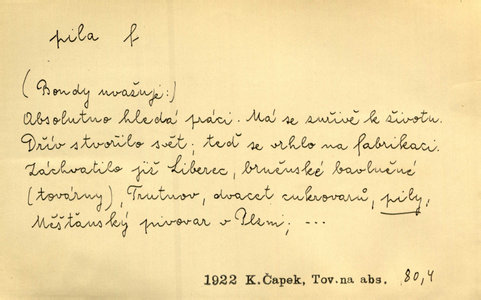 pila f
(Bondy uvažuje:)
Absolutno hledá práci. Má se zuřivě k životu.
Dřív stvořilo svět; teď se vrhlo na fabrikaci.
Zachvátilo již Liberec, brněnské bavlněné
(továrny), Trutnov, dvacet cukrovarů, pily,
Měšťanský pivovar v Plzni; ---
1922 K. Čapek, Tov. na abs. 80,4